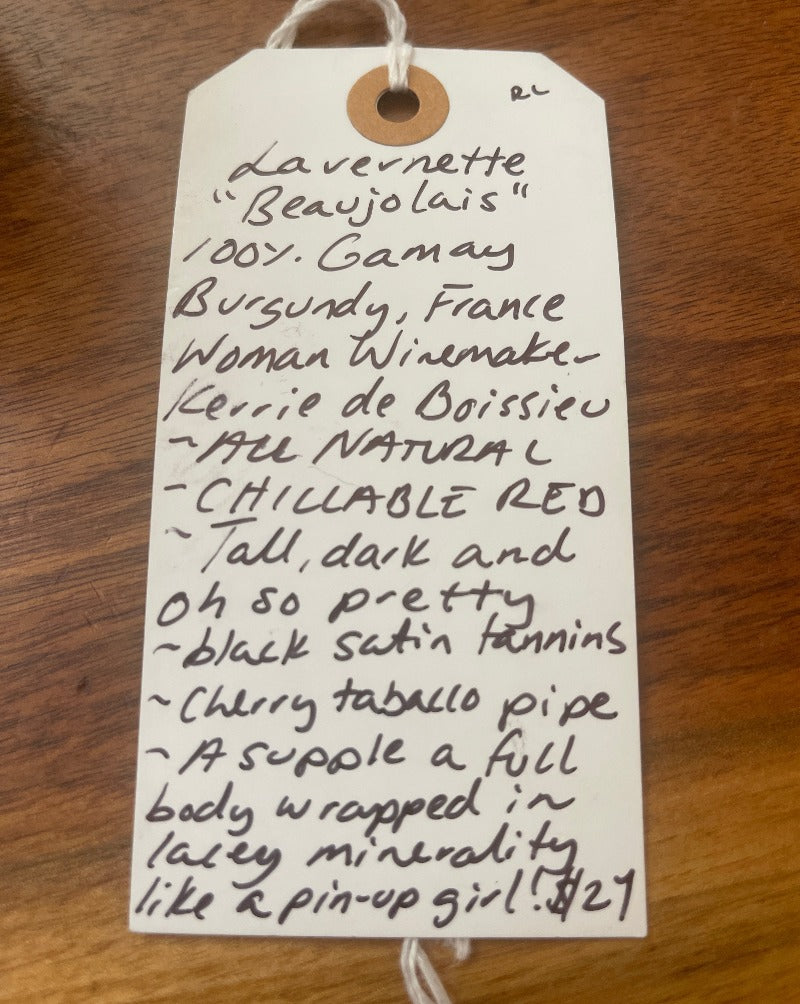 RL
Lavernette
"Beaujolais"
100% Gamay
Burgundy, France
Woman Winemaker
Kerrie de Boissieu
~ALL NATURAL
-CHILLABLE RED
~Tall, dark and
oh so pretty
~black satin tannins
~Cherry taballo pipe
~A supple a full
body wrapped in
lacey minerality
like a pin-up girl! $